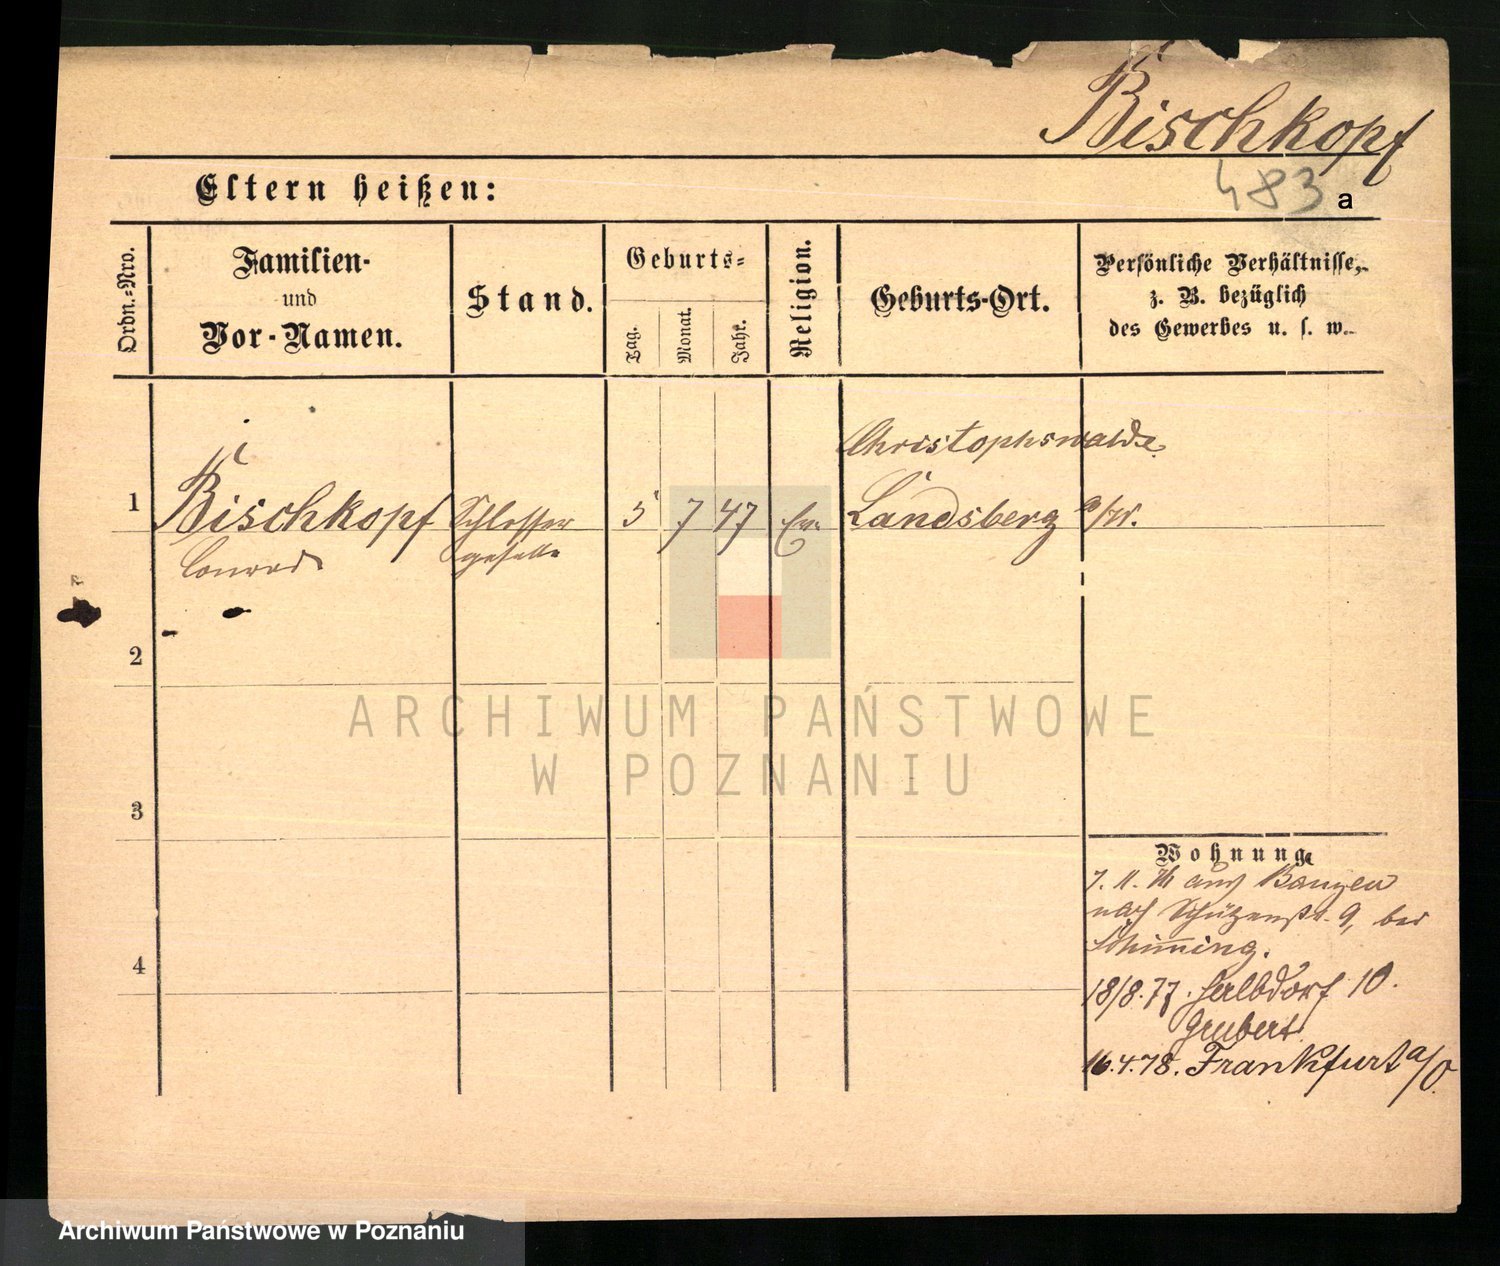 Bischkopf
483 a
Eltern heißen:
Ordn.-Nro.
Familien-
und
Vor-Namen.
Stand.
Geburts-
Tag.
Monat.
Jahr.
Religion.
Geburts-Ort.
Persönliche Verhältnisse,
z. B. bezüglich
des Gewerbes u. s. w.
Christophswalde
1 Bischkopf Schlosser 5 7 47 Ev. Landsberg a/W.
Conrad geselle
2
ARCHIWUM PAŃSTWOWE
W POZNANIU
3
Wohnung
7. 11. 76 aus
nach Schützenstr. 9, bei
18/8.77. Halbdorf 10.
Grubert
4
16.4.78. Frankfurt a/O.
Archiwum Państwowe w Poznaniu